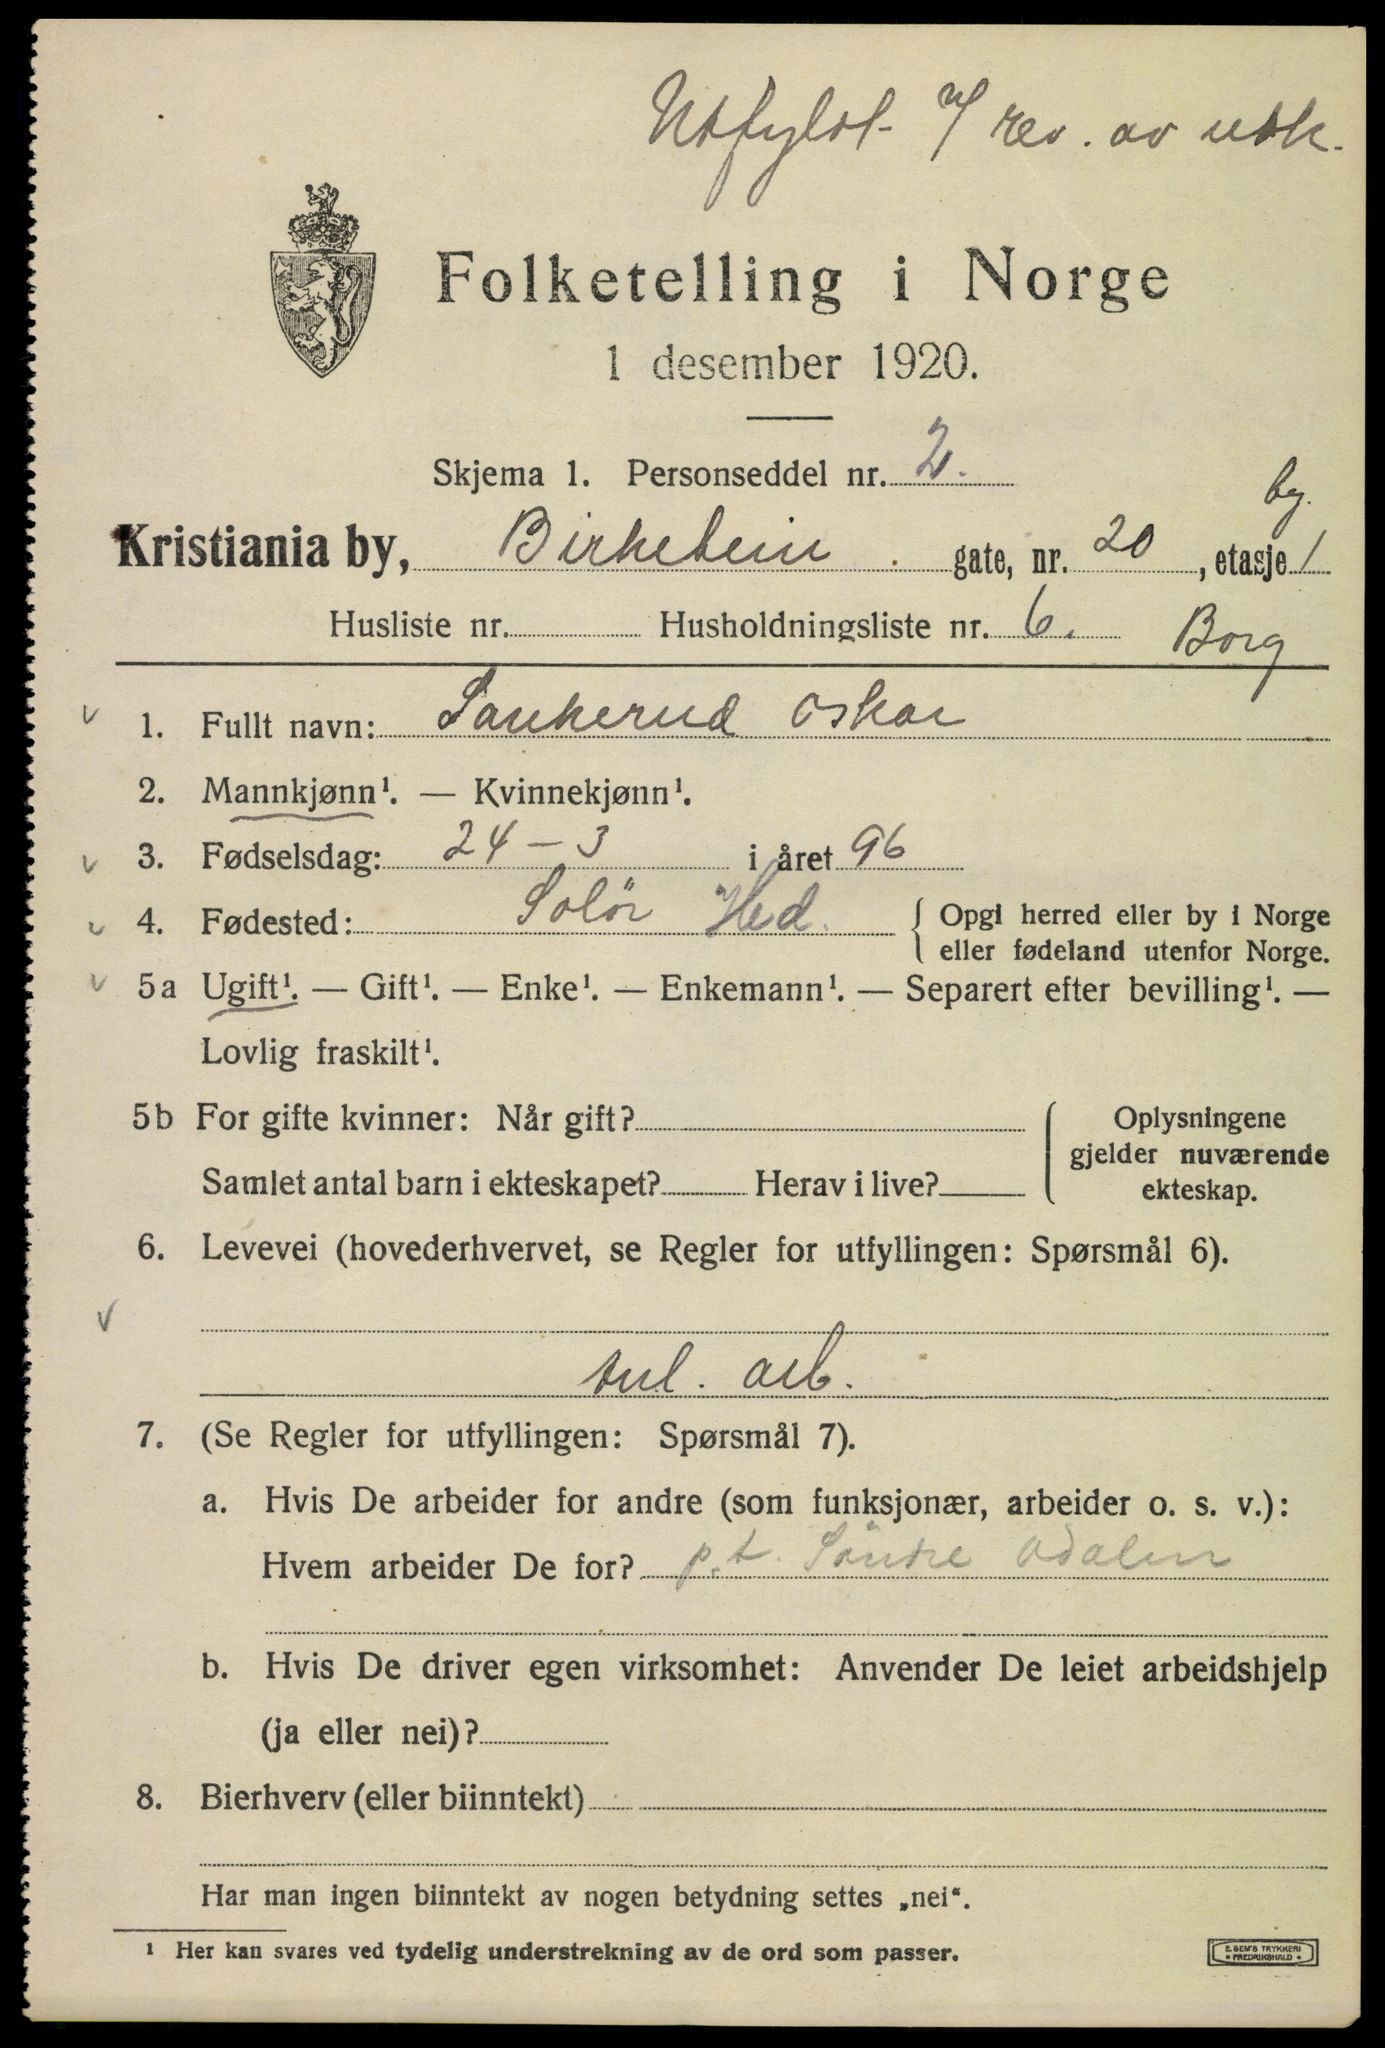 Utfylt v/ rev. av utk.
Folketelling i Norge
1 desember 1920.
Skjema 1. Personseddel nr. 2.
by.
Kristiania by, Birkebein gate, nr. 20, etasje 1
Husliste nr. Husholdningsliste nr. 6. Borg
1. Fullt navn: Sankerud Oskar
2. Mannkjønn¹. — Kvinnekjønn¹.
3. Fødselsdag: 24-3 i året 96
4. Fødested: Solör Hed. { Opgi herred eller by i Norge
eller fødeland utenfor Norge.
5a Ugift¹. — Gift¹. — Enke¹. — Enkemann¹. — Separert efter bevilling¹. —
Lovlig fraskilt¹.
5b For gifte kvinner: Når gift? Oplysningene
gjelder nuværende
Samlet antal barn i ekteskapet? Herav i live? ekteskap.
6. Levevei (hovederhvervet, se Regler for utfyllingen: Spørsmål 6).
arb.
7. (Se Regler for utfyllingen: Spørsmål 7).
a. Hvis De arbeider for andre (som funksjonær, arbeider o. s. v.):
Hvem arbeider De for? p.t. Söndre Odalen
b. Hvis De driver egen virksomhet: Anvender De leiet arbeidshjelp
(ja eller nei)?
8. Bierhverv (eller biinntekt)
Har man ingen biinntekt av nogen betydning settes „nei“.
¹ Her kan svares ved tydelig understrekning av de ord som passer.
E. SEM'S TRYKKERI
• FREDRIKSHALD •